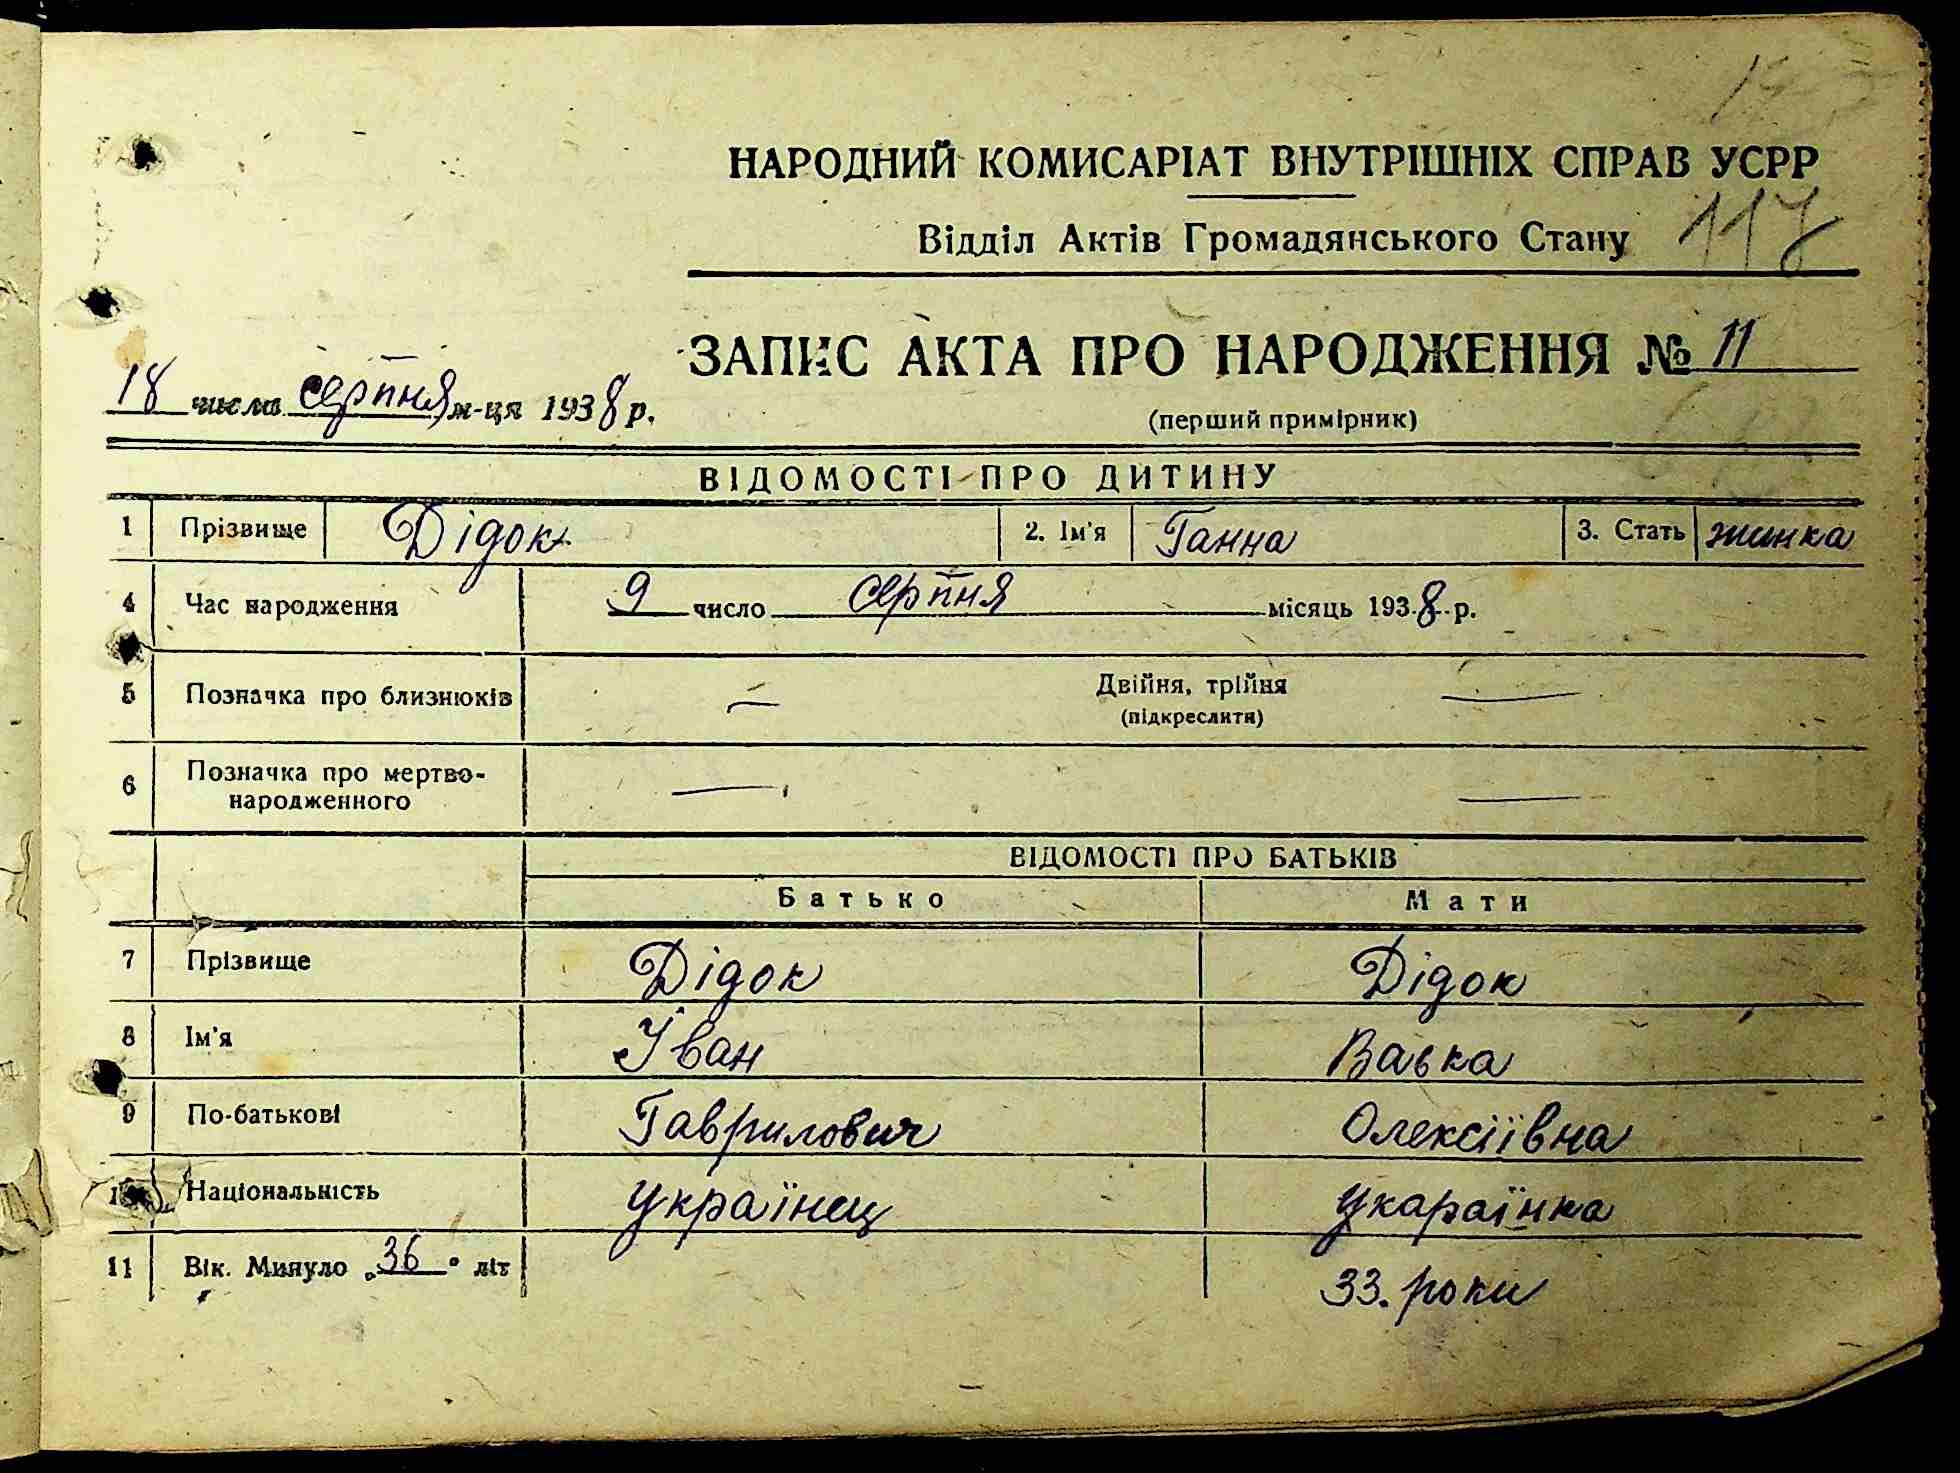 НАРОДНИЙ КОМИСАРІАТ ВНУТРІШНІХ СПРАВ УСРР
Відділ Актів Громадянського Стану 117
ЗАПИС АКТА ПРО НАРОДЖЕННЯ № 11
18 числа серпня м-ця 1938 р.
(перший примірник)
ВІДОМОСТІ ПРО ДИТИНУ
1 Прізвище Дідок 2. Ім'я Ганна 3. Стать жинка
4 Час народження 9 число серпня місяць 1938 р.
5 Позначка про близнюків — Двійня, трійня —
(підкреслити)
6 Позначка про мертво-
народженного — —
ВІДОМОСТІ ПРО БАТЬКІВ
Батько Мати
7 Прізвище Дідок Дідок
8 Ім'я Іван Васка
9 По-батькові Гаврилович Олексіївна
10 Національність українец укараінка
11 Вік. Минуло „36" літ 33. роки